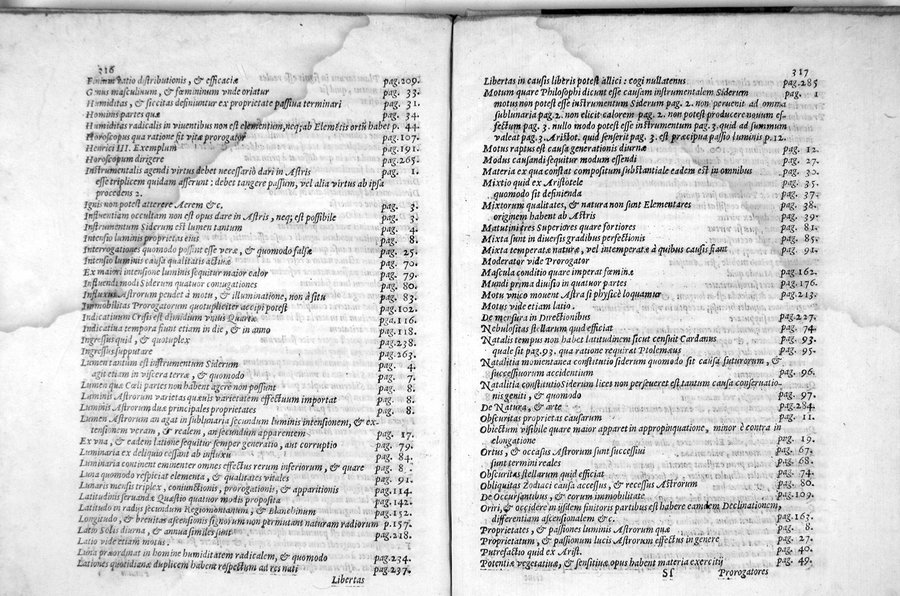 316
Feminina ratio distributionis, & efficaciæ pag. 209.
Genus masculinum, & fœmininum vnde oriatur pag. 33.
Humiditas, & siccitas definiuntur ex proprietate passiua terminari pag. 31.
Hominis partes quæ pag. 34.
Humiditas radicalis in viuentibus non est elementum, neq; ab Elemẽtis ortũ habet p. 44.
Horoscopus qua ratione sit vitæ prorogator pag. 107.
Henrici III. Exemplum pag. 191.
Horoscopum dirigere pag. 265.
Instrumentalis agendi virtus debet necessariò dari in Astris pag. 1.
esse triplicem quidam asserunt: debet tangere passum, vel alia virtus ab ipsa
procedens 2.
Ignis non potest atterere Aerem &c. pag. 3.
Influentiam occultam non est opus dare in Astris, neq; est possibile pag. 3.
Instrumentum Siderum est lumen tantum pag. 4.
Intensio luminis proprietas eius pag. 8.
Interrogationes quomodo possint esse veræ, & quomodo falsæ pag. 25.
Intensio luminis causa qualitatis actiuæ pag. 70.
Ex maiori intensione luminis sequitur maior calor pag. 79.
Influendi modi Siderum quatuor coniugationes pag. 80.
Influxus Astrorum pendet à motu, & illuminatione, non à situ pag. 83.
Immobilitas Prorogatorum quotupliciter accipi potest pag. 102.
Indicatiuum Crisis est dimidium vnius Quartæ pga. 116.
Indicatiua tempora fiunt etiam in die, & in anno pag. 118.
Ingressus quid, & quotuplex pag. 238.
Ingressus supputare pag. 263.
Lumen tantum est instrumentum Siderum pag. 4.
agit etiam in viscera terræ, & quomodo pag. 7.
Lumen qua Cœli partes non habent agere non possunt pag. 8.
Luminis Astrorum varietas quæuis varietatem effectuum importat pag. 8.
Luminis Astrorum duæ principales proprietates pag. 8.
Lumen Astrorum an agat in sublunaria secundum luminis intensionem, & ex-
tensionem veram, & realem, an secundum apparentem pag. 17.
Ex vna, & eadem latione sequitur semper generatio, aut corruptio pag. 79.
Luminaria ex deliquio cessant ab influxu pag. 84.
Luminaria continent eminenter omnes effectus rerum inferiorum, & quare pag. 8
Luna quomodo respiciat elementa, & qualitates vitales pag. 91.
Lunaris mensis triplex, coniunctionis, prorogationis, & apparitionis pag. 114.
Latitudinis seruandæ Quæstio quatuor modis proposita pag. 142.
Latitudo in radijs secundum Regiomontanum, & Blanchinum pag. 152.
Longitudo, & breuitas ascensionis signorum non permutant naturam radiorum p. 157.
Latio Solis diurna, & annua similes sunt pag. 218.
Latio vide etiam motus.
Luna præordinat in homine humiditatem radicalem, & quomodo pag. 234.
Lationes quotidianæ duplicem habent respectum ad res nati pag. 237.
Libertas
317
Libertas in causis liberis potest allici: cogi nullatenus pag. 285
Motum quare Philosophi dicunt esse causam instrumentalem Siderum pag. 1
motus non potest esse instrumentum Siderum pag. 2. non peruenit ad omnia
sublunaria pag. 2. non elicit calorem pag. 2. non potest producere nouum ef-
fectum pag. 3. nullo modo potest esse instrumentum pag. 3. quid ad summum
valeat pag. 3. Aristot. quid senserit pag. 3. est præcipua passio luminis p. 12.
Motus raptus est causa generationis diurnæ pag. 12.
Modus causandi sequitur modum essendi pag. 27.
Materia ex qua constat compositum substantiale eadem est in omnibus pag. 30.
Mixtio quid ex Aristotele pag. 35.
quomodo sit definienda pag. 37.
Mixtorum qualitates, & natura non sunt Elementares pag. 38.
originem habent ab Astris pag. 39.
Matutini tres Superiores quare fortiores pag. 81.
Mixta sunt in diuersis gradibus perfectionis pag. 85.
Mixta temperatæ naturæ, vel intemperatæ à quibus causis fiant pag. 91.
Moderator vide Prorogator
Mascula conditio quare imperat fœminæ pag. 162.
Mundi prima diuisio in quatuor partes pag. 176.
Motu vnico mouent Astra si physicè loquamur pag. 213.
Motus vide etiam latio.
De mensura in Directionibus pag. 227.
Nebulositas stellarum quid efficiat pag. 74.
Natalis tempus non habet latitudinem sicut censuit Cardanus pag. 93.
quale sit pag. 93. qua ratione requirat Ptolemæus pag. 95.
Natalitia momentanea constitutio siderum quomodo sit causa futurorum, &
successiuorum accidentium pag. 96.
Natalitia constitutio Siderum licet non perseueret est tantum causa conseruatio-
nis geniti, & quomodo pag. 97.
De Natura, & arte pag. 284.
Obscuritas proprietas causarum pag. 11.
Obiectum visibile quare maior apparet in appropinquatione, minor è contra in
elongatione pag. 19.
Ortus, & occasus Astrorum sunt successiui pag. 67.
sunt termini reales pag. 68.
Obscuritas stellarum quid efficiat pag. 74.
Obliquitas Zodiaci causa accessus, & recessus Astrorum pag. 80.
De Occursantibus, & eorum immobilitate pag. 109.
Oriri, & occidere in ijsdem finitoris partibus est habere eamdem Declinationem,
differentiam ascensionalem &c. pag. 165.
Proprietates, & passiones luminis Astrorum quæ pag. 8.
Proprietatum, & passionum lucis Astrorum effectus in genere pag. 27.
Putrefactio quid ex Arist. pag. 40.
Potentiæ vegetatiuæ, & sensitiuæ opus habent materia exercitij pag. 49.
Sf Prorogatores